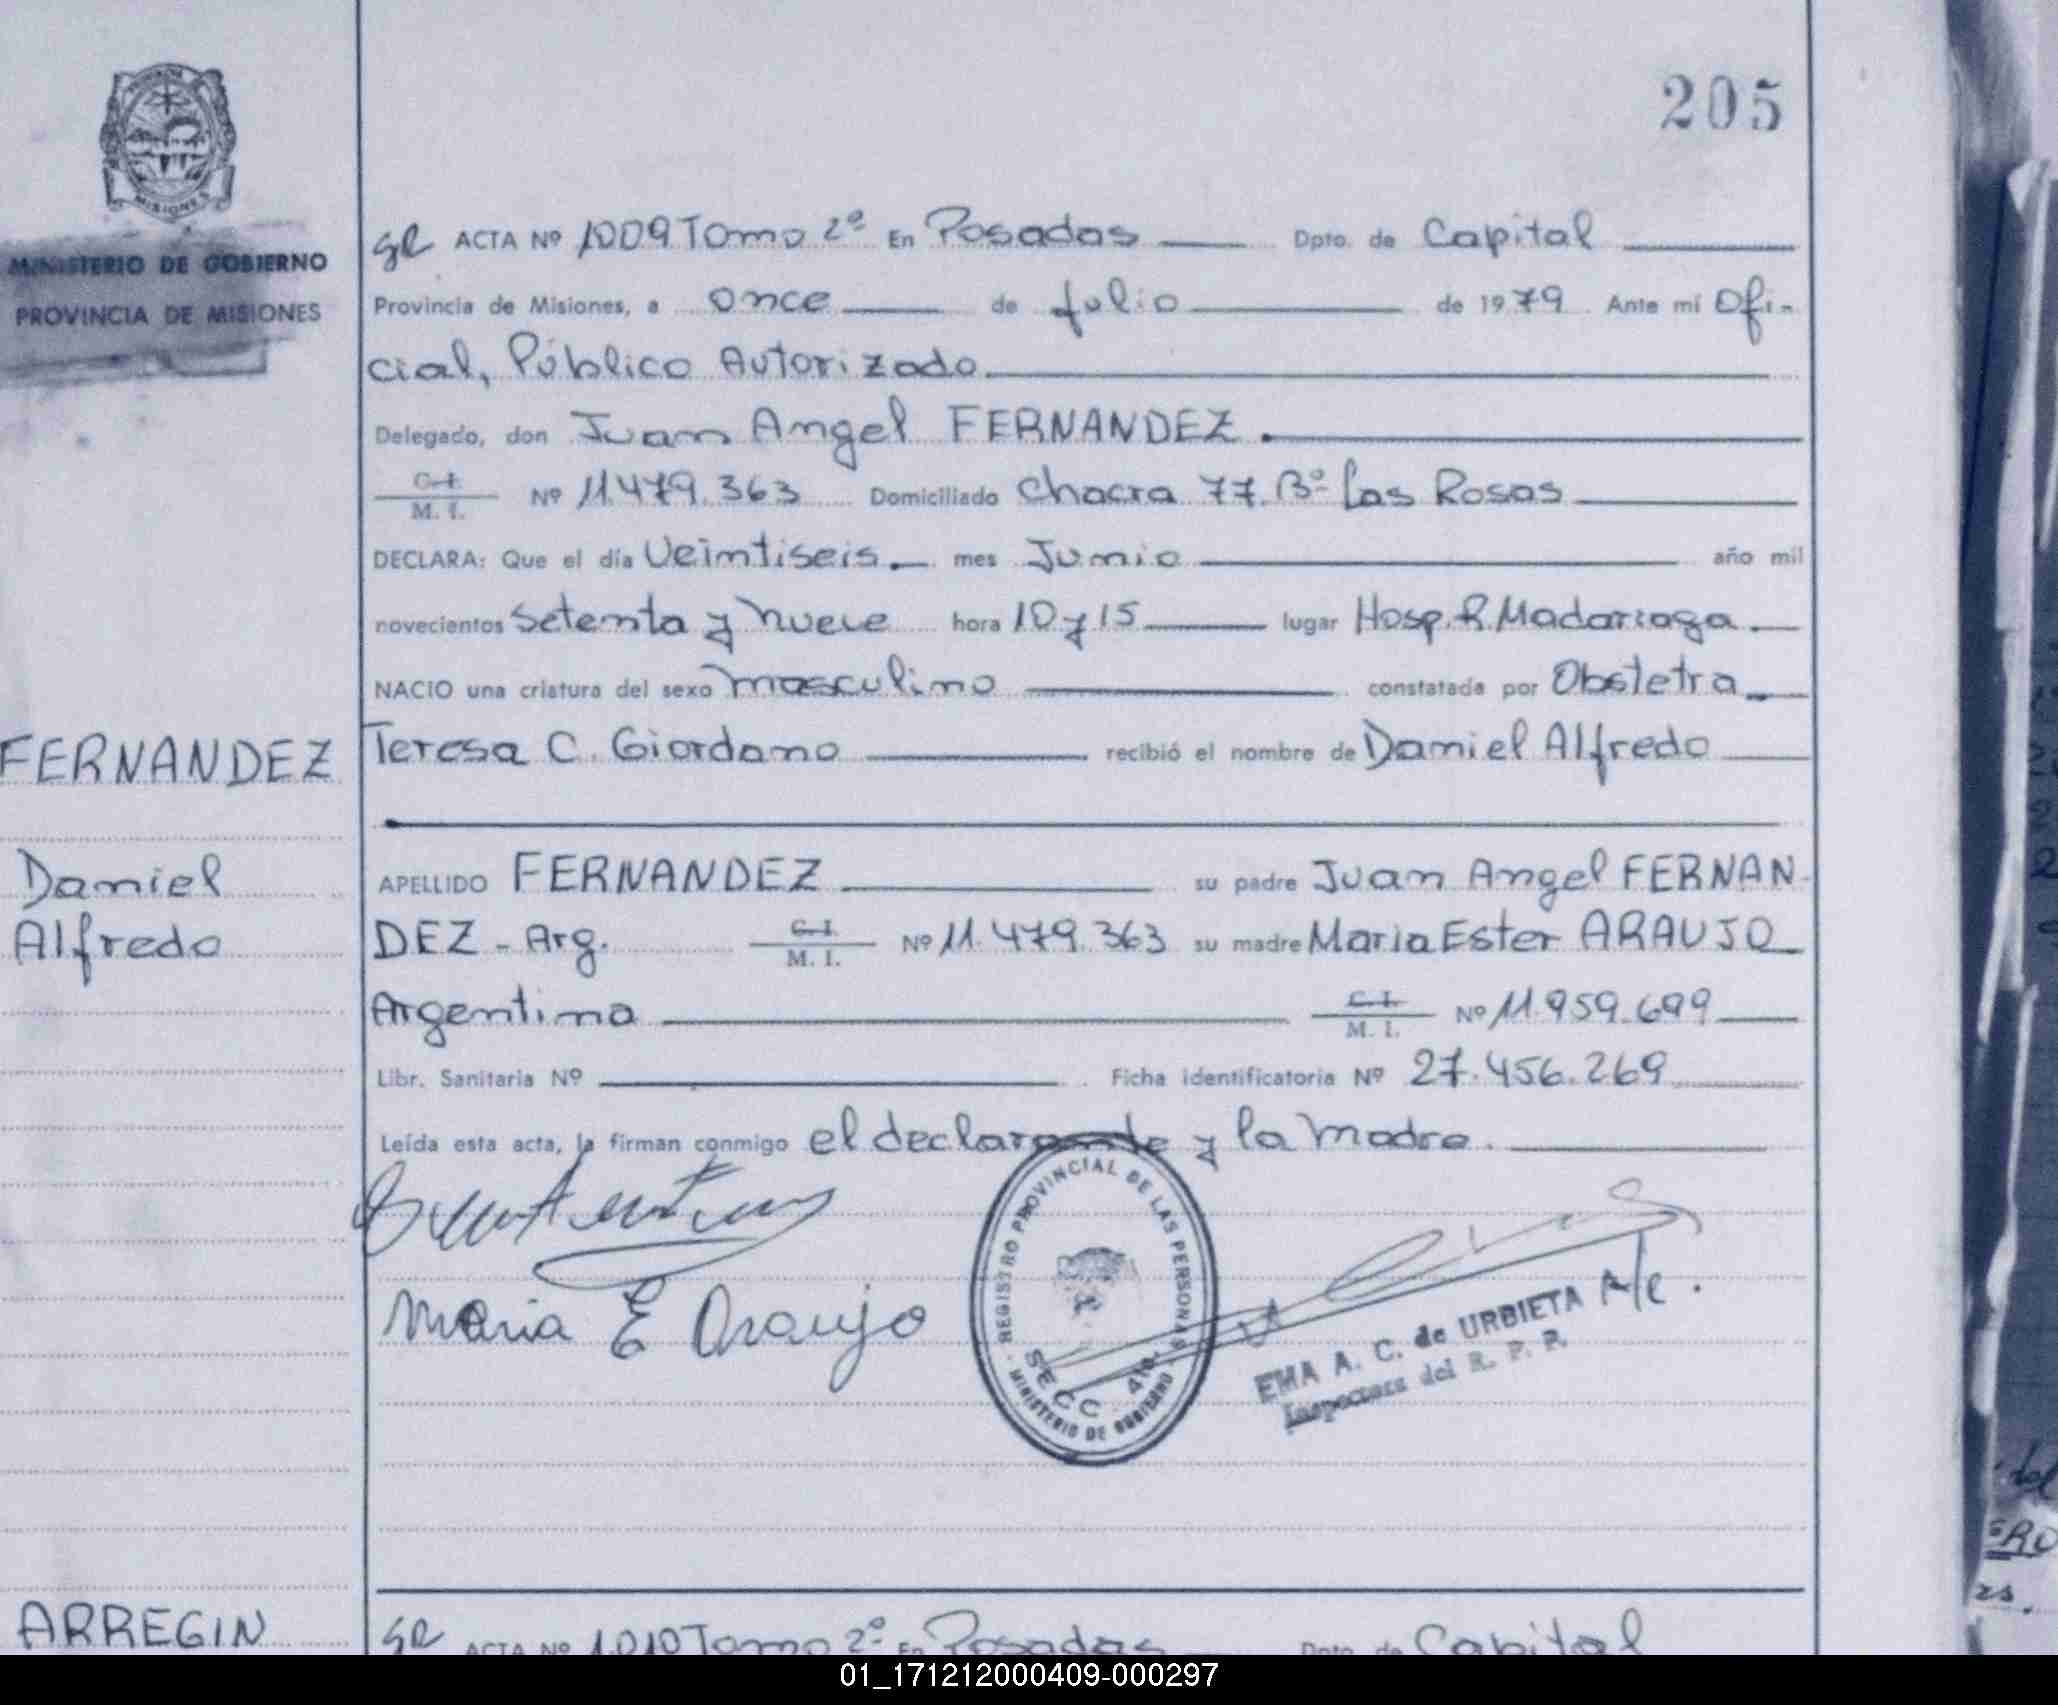 205
MISIONES
MINISTERIO DE GOBIERNO
PROVINCIA DE MISIONES
ACTA Nº 1009 Tomo 2º En Posadas Dpto. de Capital
Provincia de Misiones, a once de Julio de 1979 Ante mí Ofi-
cial, Público Autorizado
Delegado, don Juan Angel FERNANDEZ.
C.I.
M. I. Nº 11.479.363 Domiciliado Chacra 77. Bº Las Rosas
DECLARA: Que el día Veintiseis. mes Junio año mil
novecientos Setenta y nueve hora 10 y 15 lugar Hosp. R. Madariaga.
NACIO una criatura del sexo masculino constatada por Obstetra
Teresa C. Giordano recibió el nombre de Daniel Alfredo
FERNANDEZ
Daniel
Alfredo
APELLIDO FERNANDEZ su padre Juan Angel FERNAN-
DEZ - Arg. C.I. M. I. Nº 11.479.363 su madre Maria Ester ARAUJO
Argentina C.I. M. I. Nº 11.959.699
Libr. Sanitaria Nº Ficha identificatoria Nº 27.456.269
Leída esta acta, la firman conmigo el declarante y la madre.
Maria E Araujo
REGISTRO PROVINCIAL DE LAS PERSONAS
SECC.
MINISTERIO DE GOBIERNO
EMA A. C. de URBIETA A/c.
Inspectora del R. P. P.
ARREGIN
ACTA Nº 1010 Tomo 2º En Posadas Dpto. de Capital
01_171212000409-000297